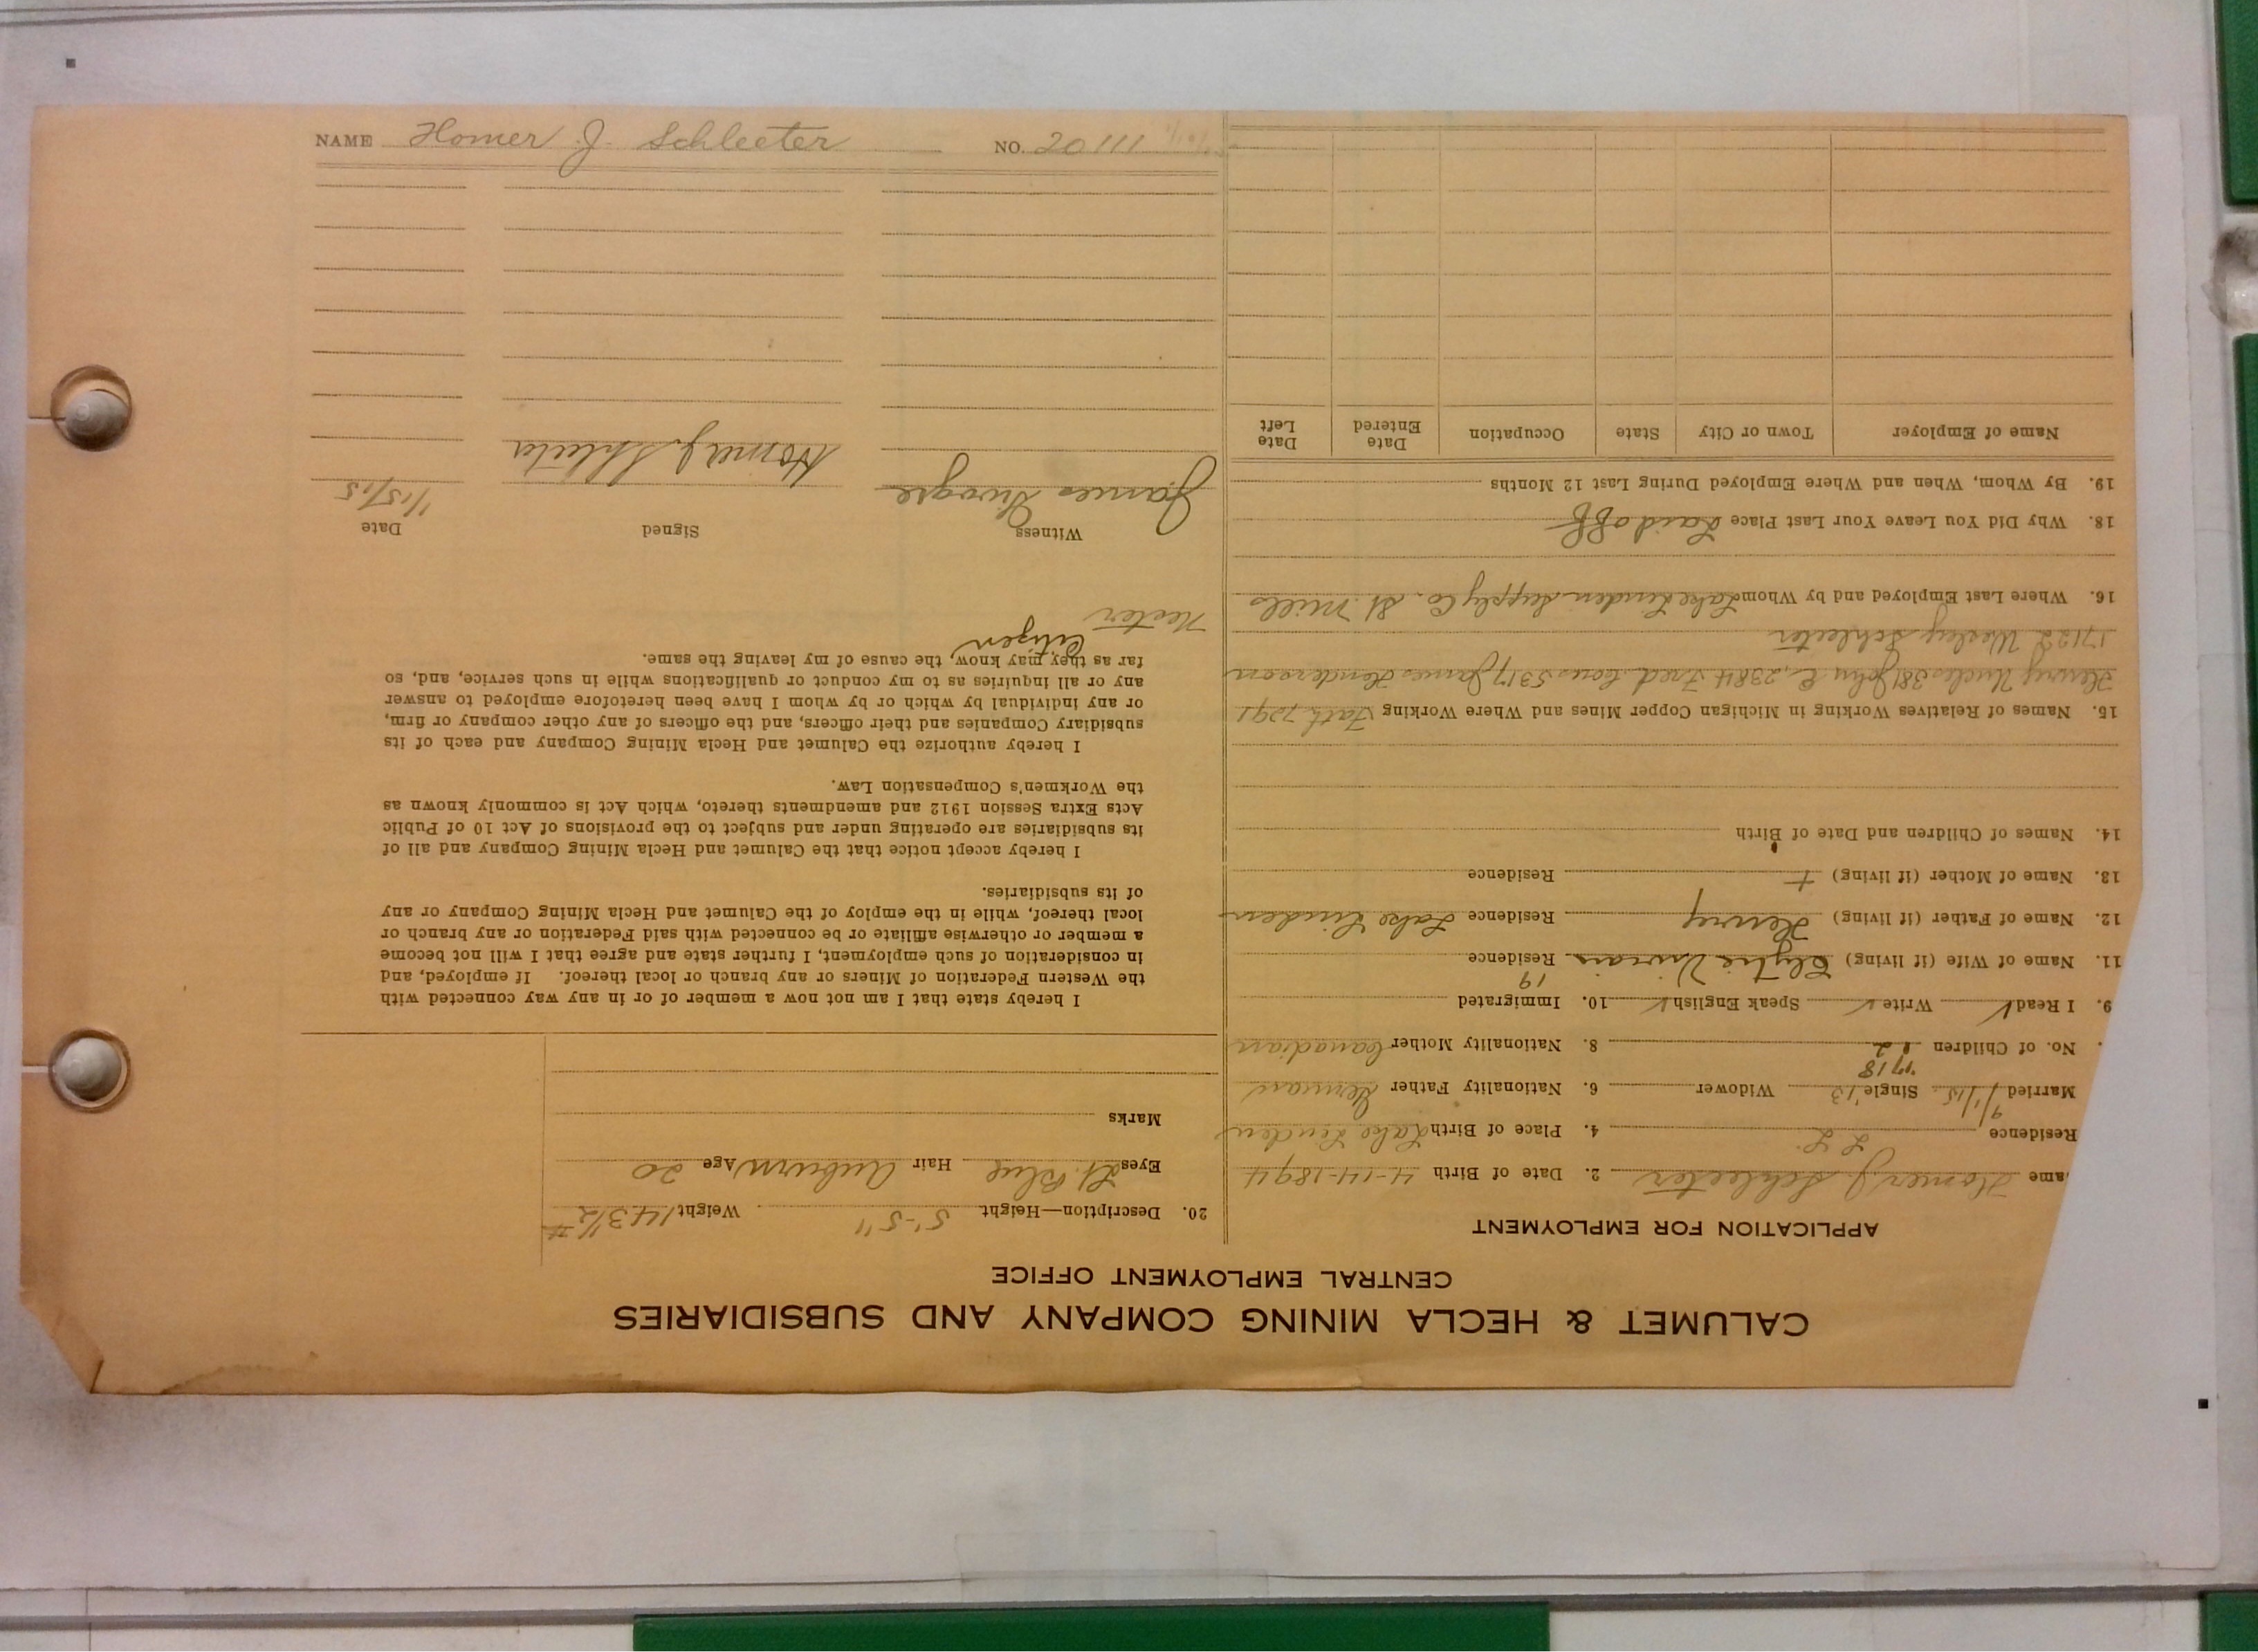 NAME Homer J. Schleeter NO. 20111
CALUMET & HECLA MINING COMPANY AND SUBSIDIARIES
CENTRAL EMPLOYMENT OFFICE
APPLICATION FOR EMPLOYMENT
ame Homer J. Schleeter 2. Date of Birth 4-14-1894
Residence L L 4. Place of Birth Lake Linden
Married 9/1/15 Single '13 Widower 6. Nationality Father German
"17 18
No. of Children 2 8. Nationality Mother Canadian
9. I Read ✓ Write ✓ Speak English ✓ 10. Immigrated
19
11. Name of Wife (if living) Residence
12. Name of Father (if living) Henry Residence Lake Linden
13. Name of Mother (if living) + Residence
14. Names of Children and Date of Birth
15. Names of Relatives Working in Michigan Copper Mines and Where Working Fath. 7291
Henry Uncles 381 John C. 2384 Fred Cous 5317 James Henderson
17122 Wesley Schleeter
16. Where Last Employed and by Whom Lake Linden Supply Co. St. Mills
18. Why Did You Leave Your Last Place Laid off
19. By Whom, When and Where Employed During Last 12 Months
Name of Employer Town or City State Occupation Date Entered Date Left
20. Description—Height 5'-5" Weight 143 1/2 #
Eyes Lt. Blue Hair Auburn Age 20
Marks
I hereby state that I am not now a member of or in any way connected with
the Western Federation of Miners or any branch or local thereof. If employed, and
in consideration of such employment, I further state and agree that I will not become
a member or otherwise affiliate or be connected with said Federation or any branch or
local thereof, while in the employ of the Calumet and Hecla Mining Company or any
of its subsidiaries.
I hereby accept notice that the Calumet and Hecla Mining Company and all of
its subsidiaries are operating under and subject to the provisions of Act 10 of Public
Acts Extra Session 1912 and amendments thereto, which Act is commonly known as
the Workmen's Compensation Law.
I hereby authorize the Calumet and Hecla Mining Company and each of its
subsidiary Companies and their officers, and the officers of any other company or firm,
or any individual by which or by whom I have been heretofore employed to answer
any or all inquiries as to my conduct or qualifications while in such service, and, so
far as they may know, the cause of my leaving the same.
Citizen
Witness Signed Date
James Homer J. Schleeter 1/15/15